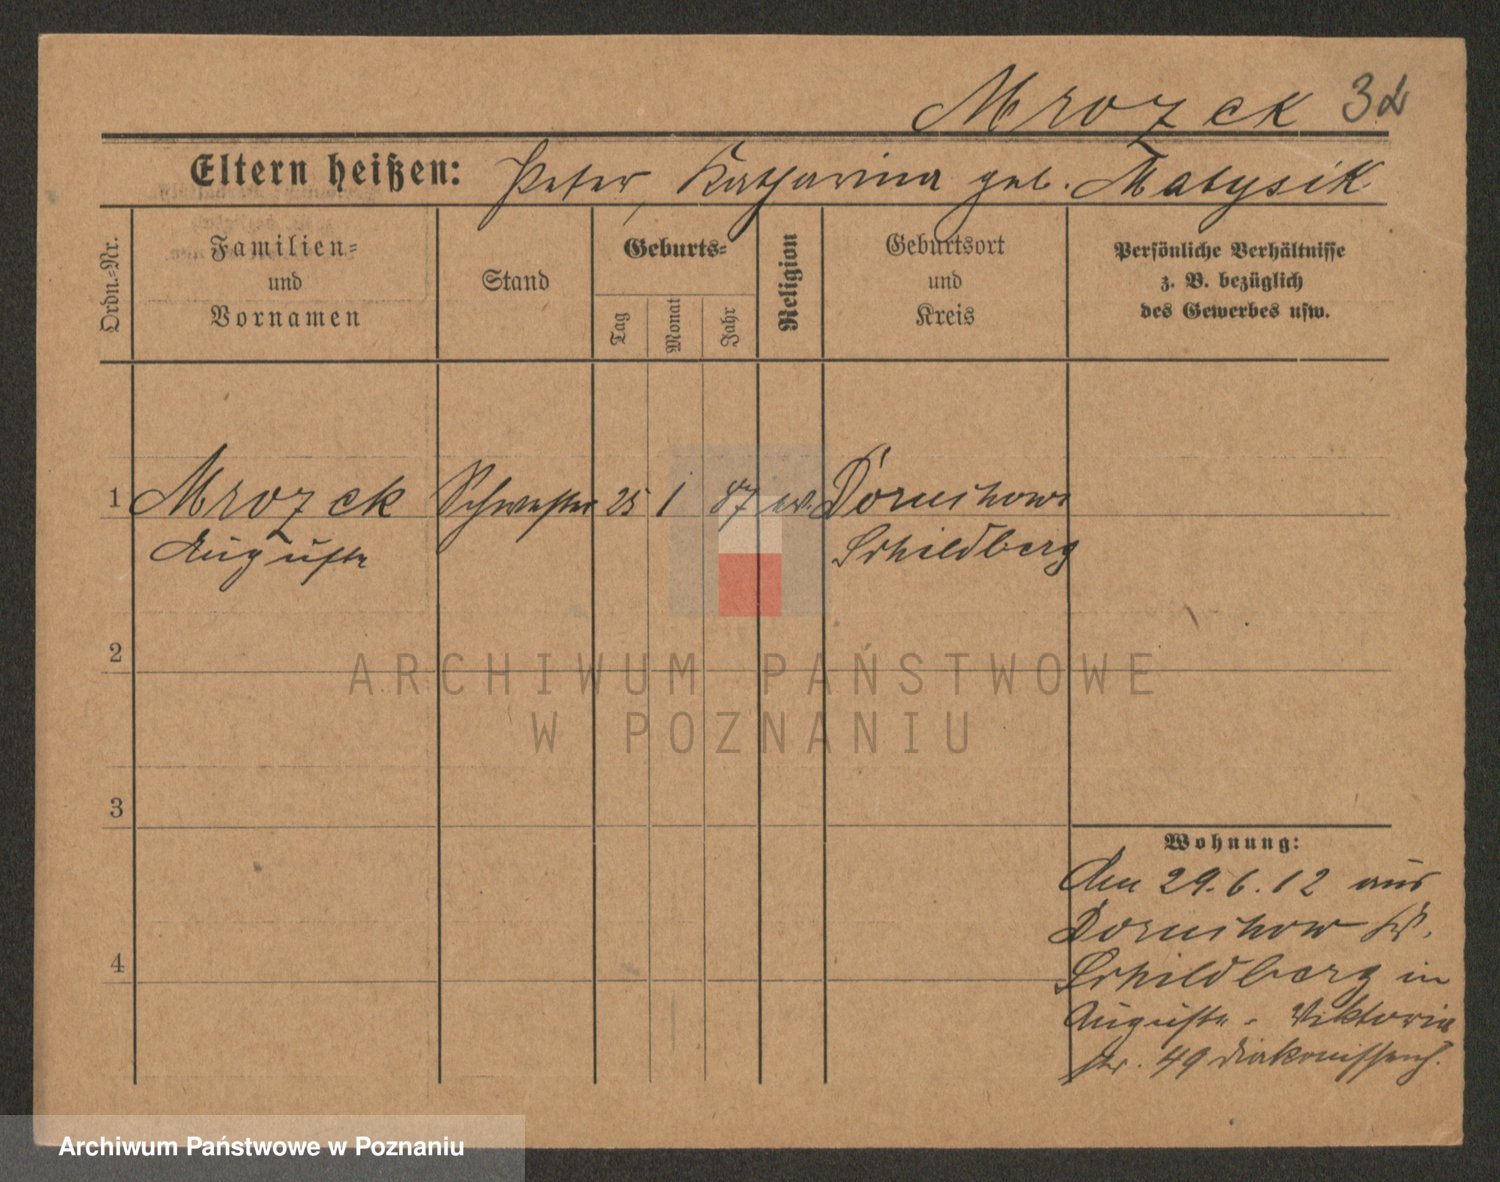 Mrozek 32
Eltern heißen: Peter, Katharina geb. Matysik
Ordn.-Nr.
Familien-
und
Vornamen
Stand
Geburts-
Tag
Monat
Jahr
Religion
Geburtsort
und
Kreis
Persönliche Verhältnisse
z. B. bezüglich
des Gewerbes usw.
1 Mrozek Schwester 25 1 87 ev. Doruchow
Auguste Schildberg
2
3
4
Wohnung:
Den 29.6.12 aus
Doruchow Kr.
Schildberg in
Auguste - Viktoria
str. 49 Diakonissenh.
ARCHIWUM PAŃSTWOWE
W POZNANIU
Archiwum Państwowe w Poznaniu